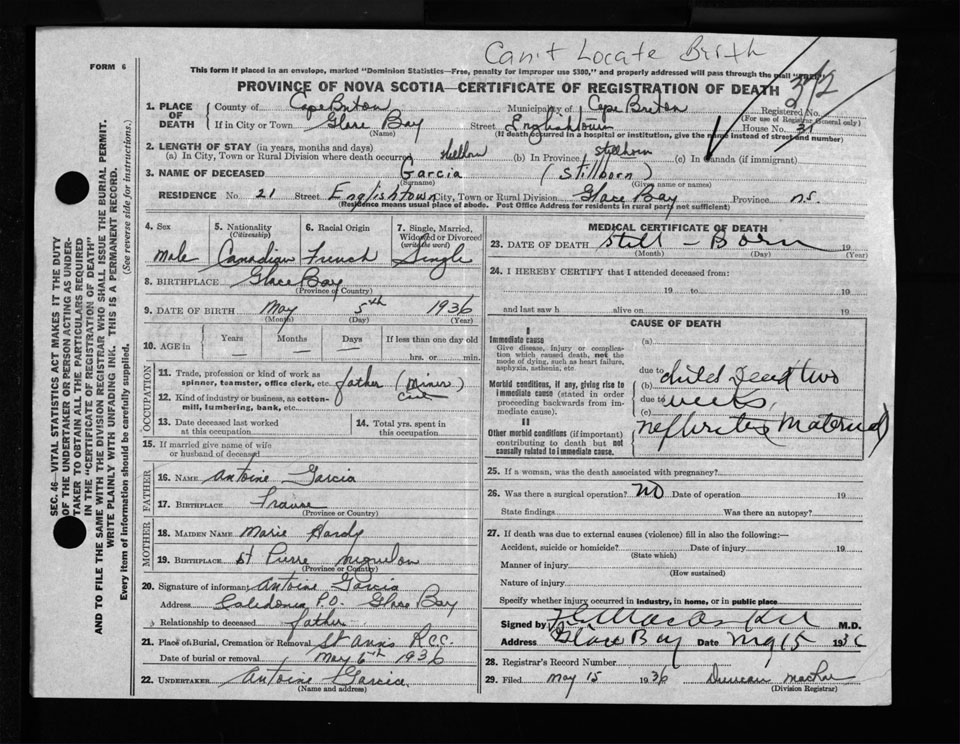 Can't Locate Birth
FORM 6
This form if placed in an envelope, marked "Dominion Statistics—Free, penalty for improper use $300," and properly addressed will pass through the mail "FREE"
312
PROVINCE OF NOVA SCOTIA—CERTIFICATE OF REGISTRATION OF DEATH
1. PLACE OF DEATH
County of Cape Breton Municipality of Cape Breton Registered No.
(For use of Registrar General only)
If in City or Town Glace Bay Street Englishtown House No. 31
(Name) (If death occurred in a hospital or institution, give the name instead of street and number)
2. LENGTH OF STAY (in years, months and days)
(a) In City, Town or Rural Division where death occurred stillborn (b) In Province stillborn (c) In Canada (if immigrant)
3. NAME OF DECEASED Garcia (Stillborn)
(Surname) (Given name or names)
RESIDENCE No. 21 Street Englishtown City, Town or Rural Division Glace Bay Province N.S.
(Residence means usual place of abode. Post Office Address for residents in rural parts not sufficient)
4. Sex 5. Nationality (Citizenship) 6. Racial Origin 7. Single, Married, Widowed or Divorced (write the word)
Male Canadian French Single
8. BIRTHPLACE Glace Bay
(Province or Country)
9. DATE OF BIRTH May 5th 1936
(Month) (Day) (Year)
10. AGE in Years Months Days If less than one day old
— — — hrs. or min.
OCCUPATION
11. Trade, profession or kind of work as spinner, teamster, office clerk, etc. father (Miner)
12. Kind of industry or business, as cotton-mill, lumbering, bank, etc.
13. Date deceased last worked at this occupation
14. Total yrs. spent in this occupation
15. If married give name of wife or husband of deceased
FATHER
16. Name Antoine Garcia
17. Birthplace France
(Province or Country)
MOTHER
18. Maiden Name Marie Hardy
19. Birthplace St Pierre Miquelon
(Province or Country)
20. Signature of informant Antoine Garcia
Address Caledonia P.O. Glace Bay
Relationship to deceased father
21. Place of Burial, Cremation or Removal St Anns R.C.C.
Date of burial or removal May 6th 1936
22. UNDERTAKER Antoine Garcia
(Name and address)
MEDICAL CERTIFICATE OF DEATH
23. DATE OF DEATH Still – Born 19
(Month) (Day) (Year)
24. I HEREBY CERTIFY that I attended deceased from:
19 to 19
and last saw h alive on 19
CAUSE OF DEATH
I
Immediate cause
Give disease, injury or complication which caused death, not the mode of dying, such as heart failure, asphyxia, asthenia, etc.
Morbid conditions, if any, giving rise to immediate cause (stated in order proceeding backwards from immediate cause).
II
Other morbid conditions (if important) contributing to death but not causally related to immediate cause.
(a)
due to
(b) child dead two
due to
(c) weeks
nephritis Maternal
25. If a woman, was the death associated with pregnancy?
26. Was there a surgical operation? No Date of operation 19
State findings Was there an autopsy?
27. If death was due to external causes (violence) fill in also the following:—
Accident, suicide or homicide? Date of injury 19
(State which)
Manner of injury
(How sustained)
Nature of injury
Specify whether injury occurred in industry, in home, or in public place
Signed by M.D.
Address Glace Bay Date 15 1936
28. Registrar's Record Number
29. Filed May 15 1936 Duncan MacRae
(Division Registrar)
SEC. 46—VITAL STATISTICS ACT MAKES IT THE DUTY
OF THE UNDERTAKER OR PERSON ACTING AS UNDER-
TAKER TO OBTAIN ALL THE PARTICULARS REQUIRED
IN THE "CERTIFICATE OF REGISTRATION OF DEATH"
AND TO FILE THE SAME WITH THE DIVISION REGISTRAR WHO SHALL ISSUE THE BURIAL PERMIT.
WRITE PLAINLY WITH UNFADING INK. THIS IS A PERMANENT RECORD.
Every item of information should be carefully supplied. (See reverse side for instructions.)